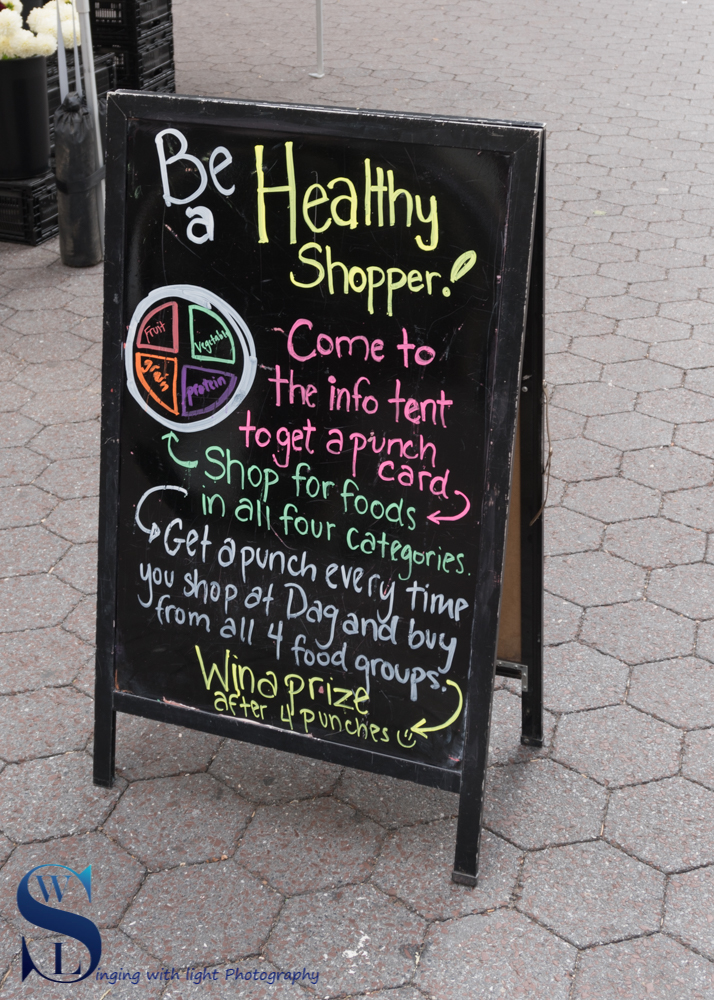 Be
a
Healthy
Shopper!
Fruit
Vegetable
grain
protein
Come to
the info tent
to get a punch
card
Shop for foods
in all four categories.
Get a punch every time
you shop at Dag and buy
from all 4 food groups.
Win a prize
after 4 punches
SWL
inging with light Photography